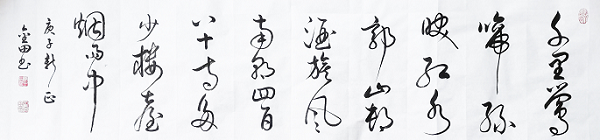 千里鶯
啼綠
映红水
郭山村
酒旗风
南朝四百
八十寺多
少樓臺
烟雨中
庚子新正
金田书